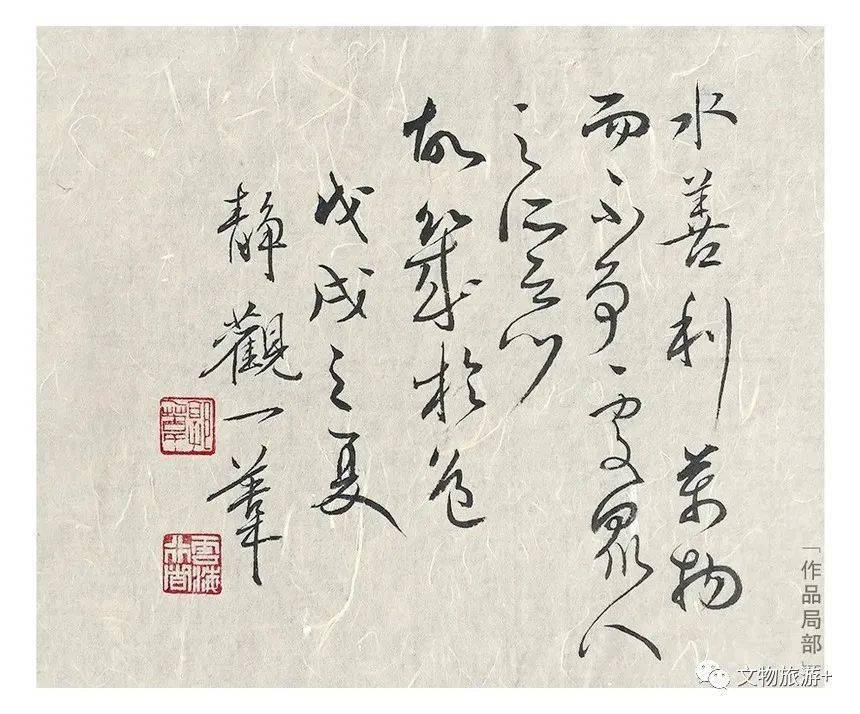 水善利萬物
而不爭處眾人
之所惡
故幾於道
戊戌之夏
靜觀一
「作品局部」
文物旅游+